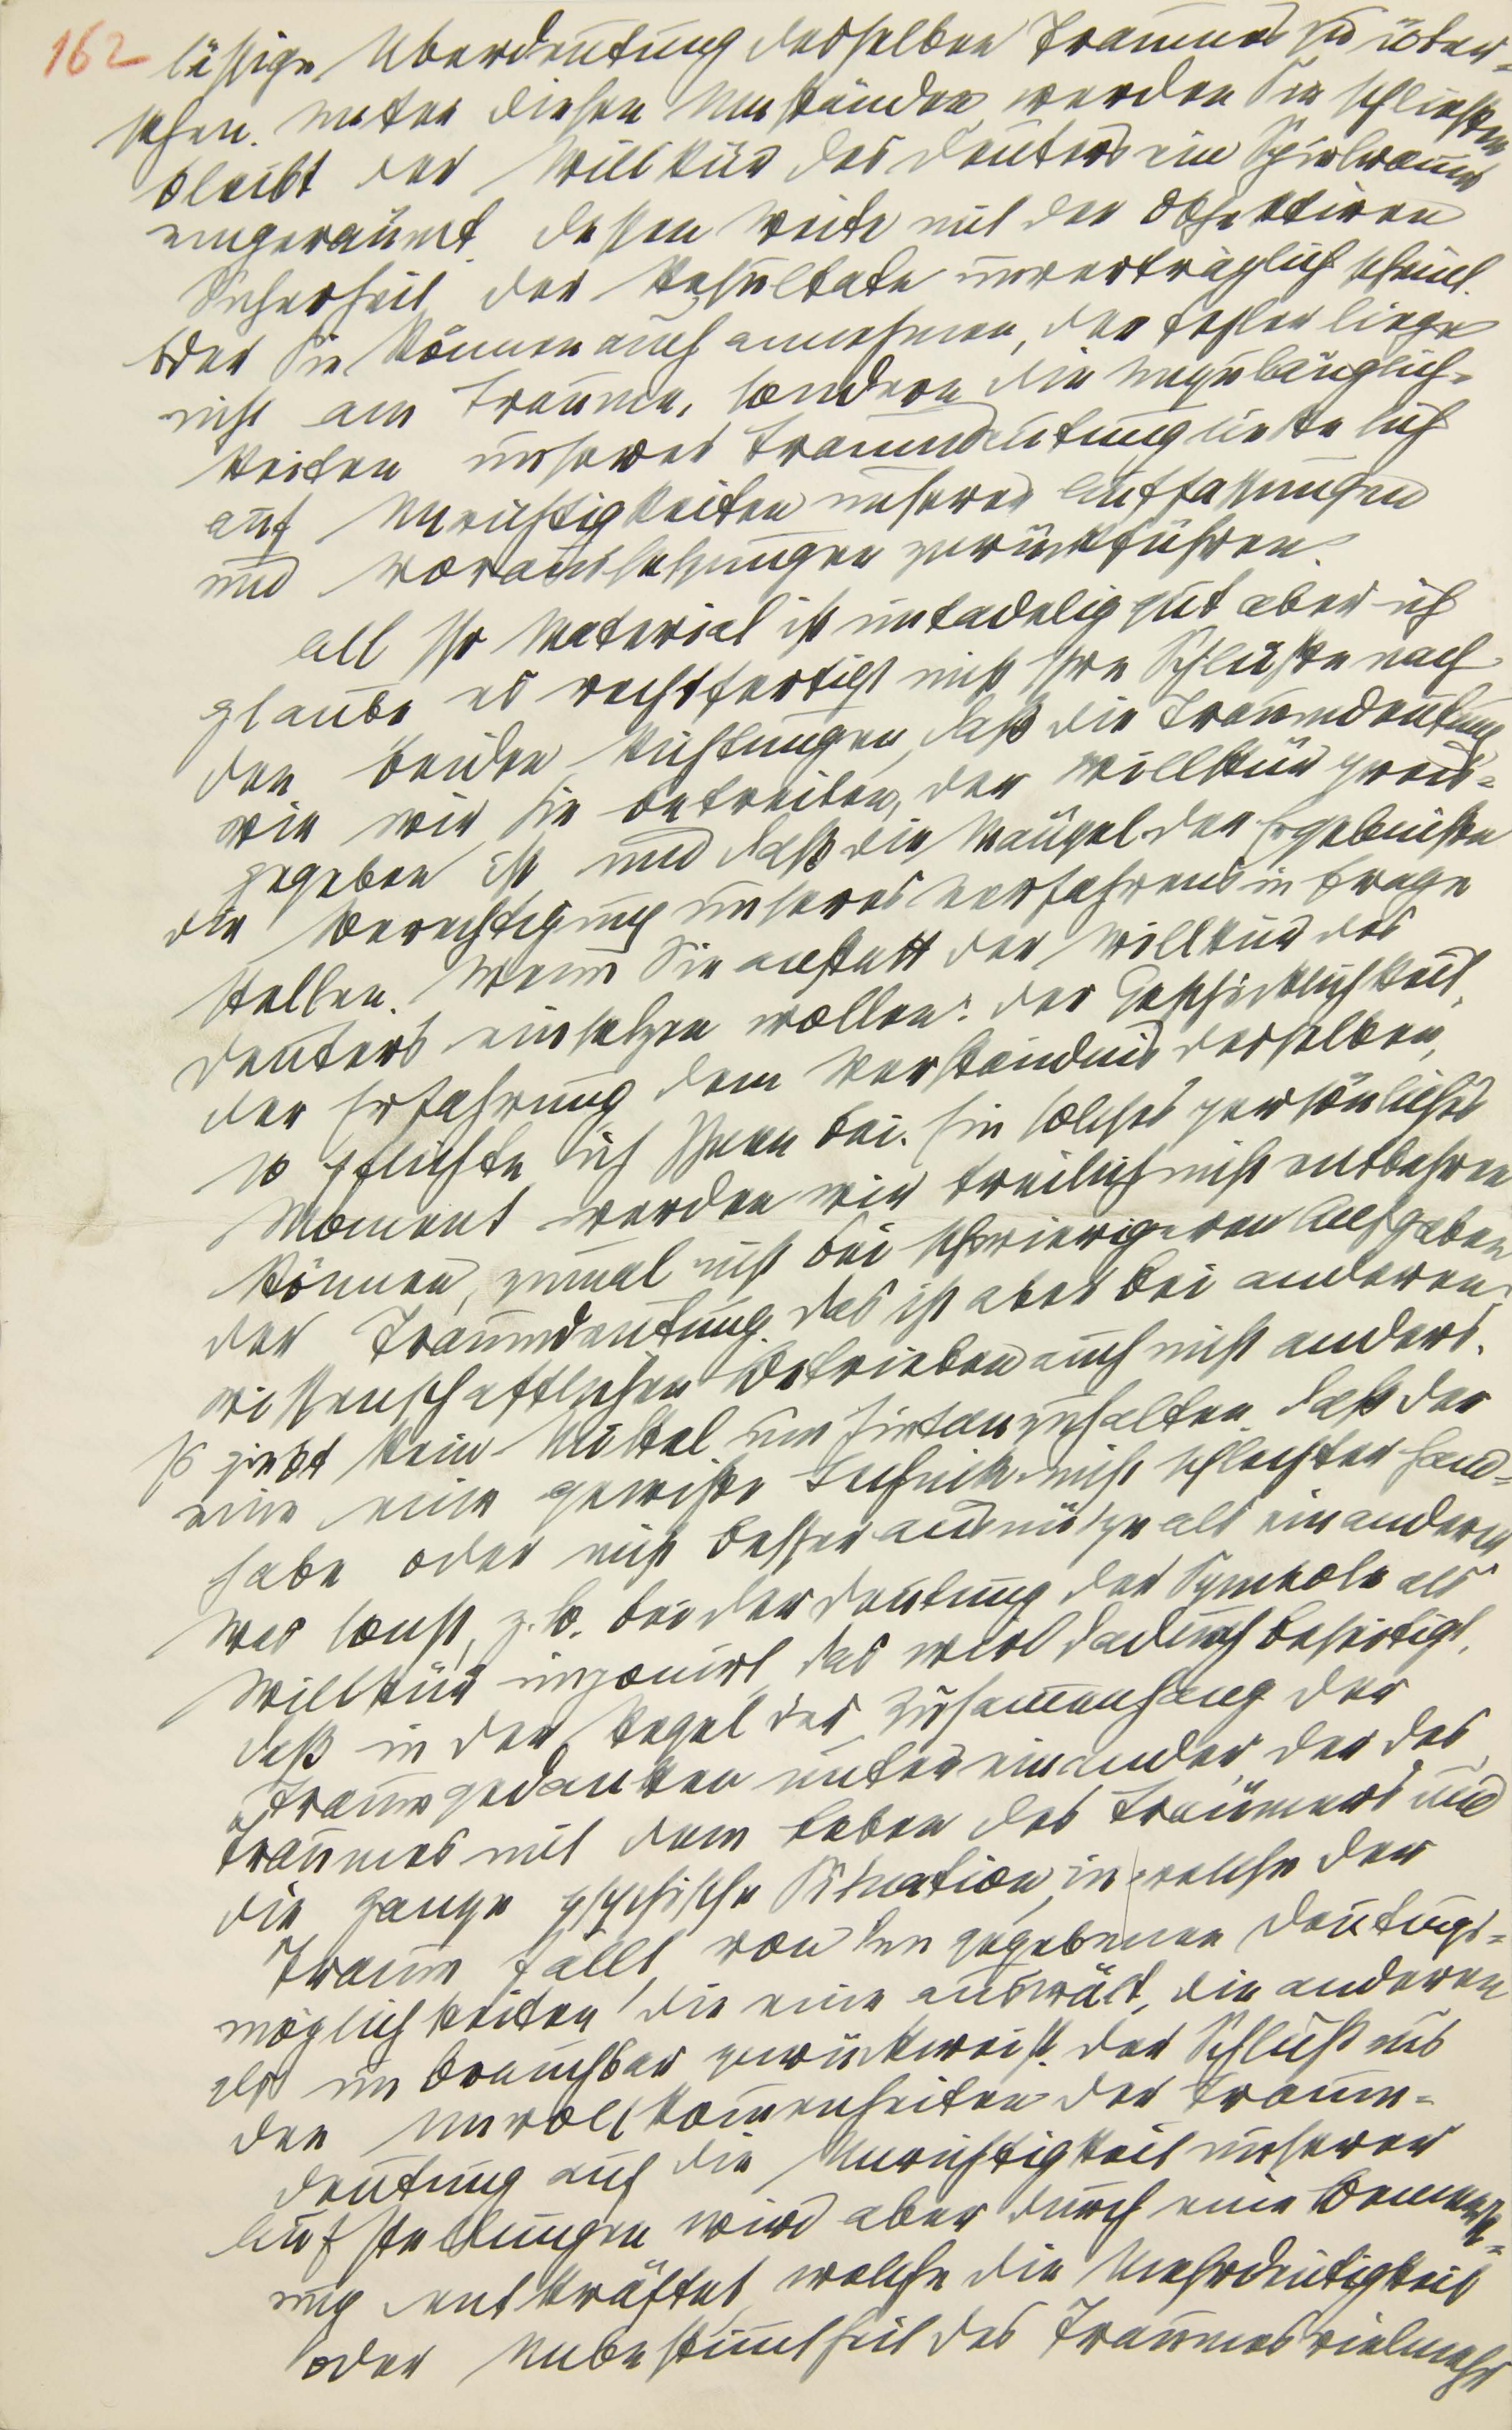 162
lässige Überdeutung desselben Traumes zu über-
sehen. Unter diesen Umständen, werden Sie schließen
bleibt der Willkür des Deuters ein Spielraum
eingeräumt, dessen Weite mit der objektiven
Sicherheit der Resultate unverträglich scheint.
Oder Sie können auch annehmen, der Fehler liege
nicht am Traume, sondern die Unzulänglich-
keiten unserer Traumdeutung ließe sich
auf Unrichtigkeiten unserer Auffassungen
und Voraussetzungen zurückführen.
All Ihr Material ist untadelig gut aber ich
glaube, es rechtfertigt nicht Ihre Schlüsse nach
den beiden Richtungen, daß die Traumdeutung
wie wir sie betreiben, der Willkür preis-
gegeben ist und daß die Mängel der Ergebnisse
die Berechtigung unseres Verfahrens in Frage
stellen. Wenn Sie anstatt der Willkür des
Deuters einsetzen wollen: der Geschicklichkeit,
der Erfahrung dem Verständnis desselben,
so pflichte ich Ihnen bei. Ein solches persönliches
Moment werden wir freilich nicht entbehren
können, zumal nicht bei schwierigeren Aufgaben
der Traumdeutung. Das ist aber bei anderen
wissenschaftlichen Betrieben auch nicht anders.
Es giebt kein Mittel um hintanzuhalten daß der
eine eine gewisse Technik nicht schlechter hand-
habe oder nicht besser ausnütze als ein anderer
Was sonst, z.B. bei der Deutung der Symbole als
Willkür imponirt, das wird dadurch beseitigt,
daß in der Regel der Zusammenhang der
Traumgedanken untereinander, der des
Traumes mit dem Leben des Träumers und
die ganze psychische Situation, in welche der
Traum fällt, von den gegebenen Deutungs-
möglichkeiten die eine auswält, die anderen
als unbrauchbar zurückweist. Der Schluß aus
den Unvollkommenheiten der Traum-
deutung auf die Unrichtigkeit unserer
Aufstellungen wird aber durch eine Bemerk-
ung entkräftet, welche die Mehrdeutigkeit
oder Unbestimmtheit des Traumes vielmehr